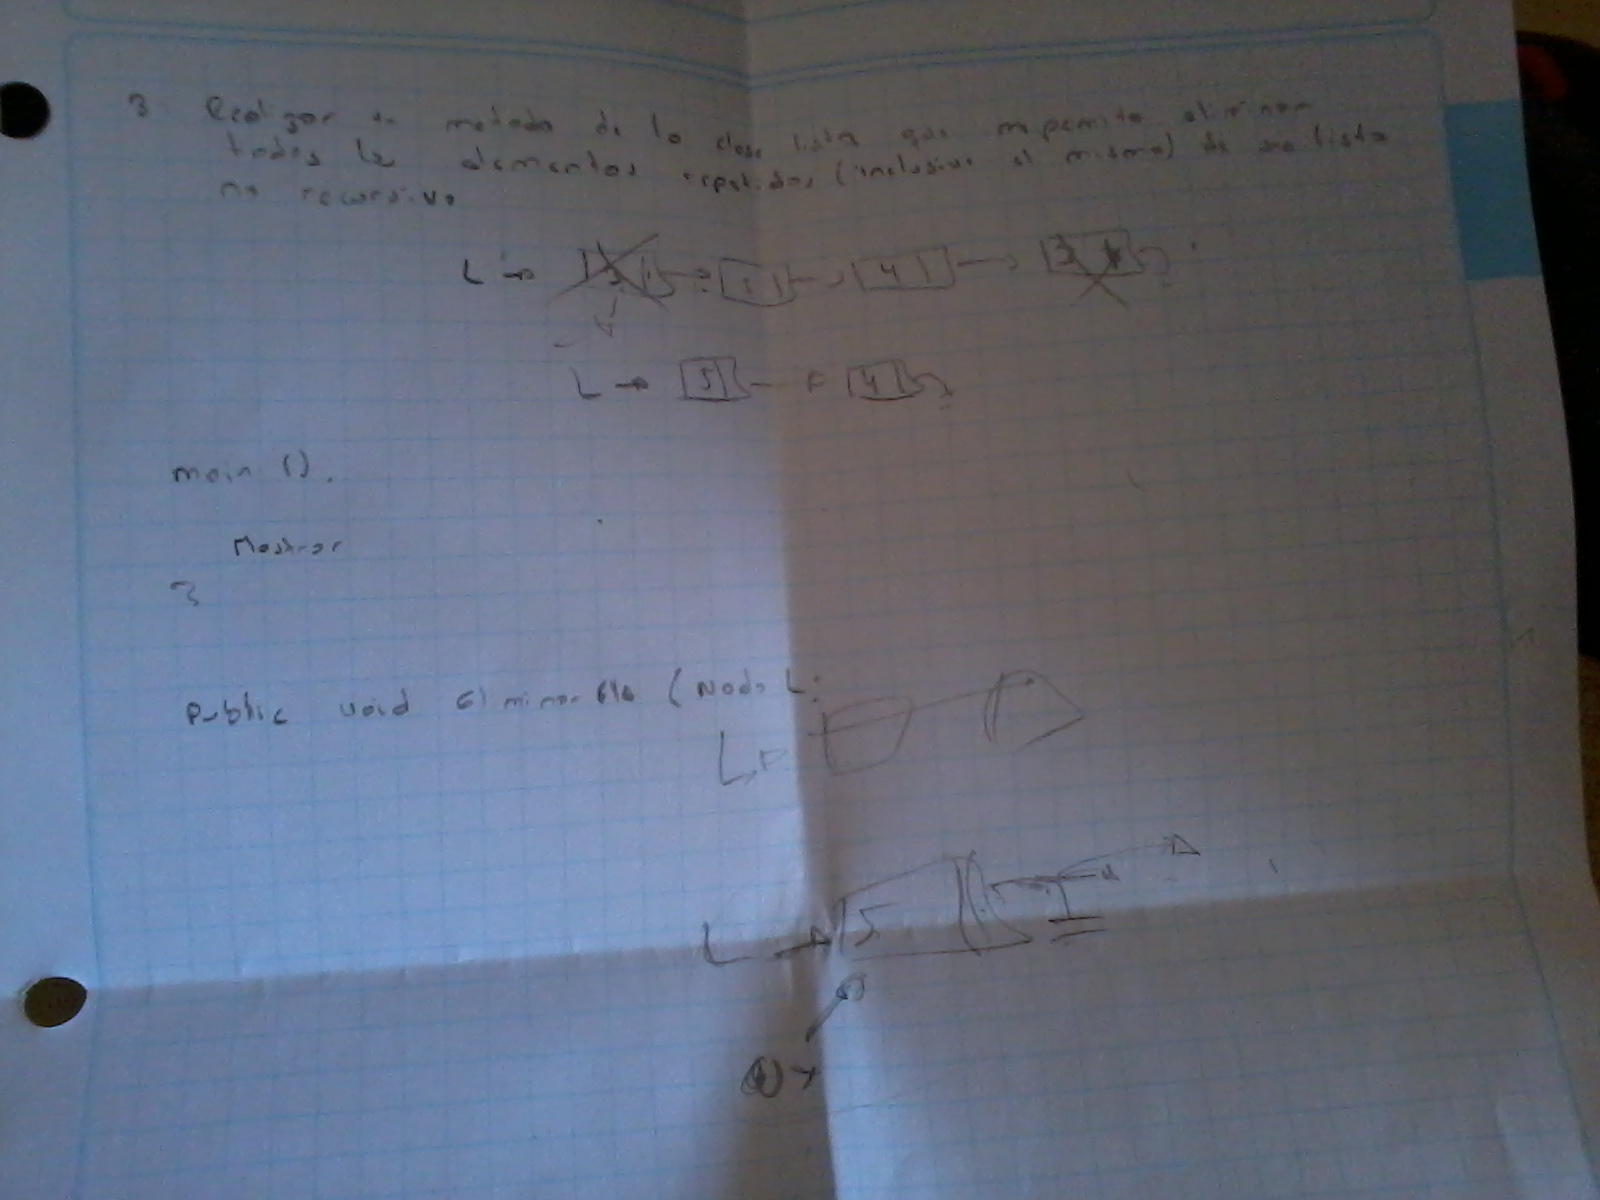 3. Realizar un metodo de la clase lista que me permita eliminar
todos los elementos repetidos (inclusive el mismo) de una lista
no recursivo
L → 3 → 5 → 4 → 3
L → 5 → 4
main ().
Mostrar
}
public void Eliminar (Nodo L:
L
L → 5